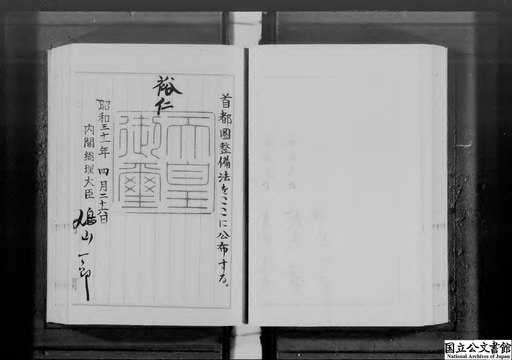 首都圏整備法をここに公布する。
裕仁
天皇
御璽
昭和三十一年四月二十六日
内閣総理大臣 鳩山一郎
国立公文書館
National Archives of Japan